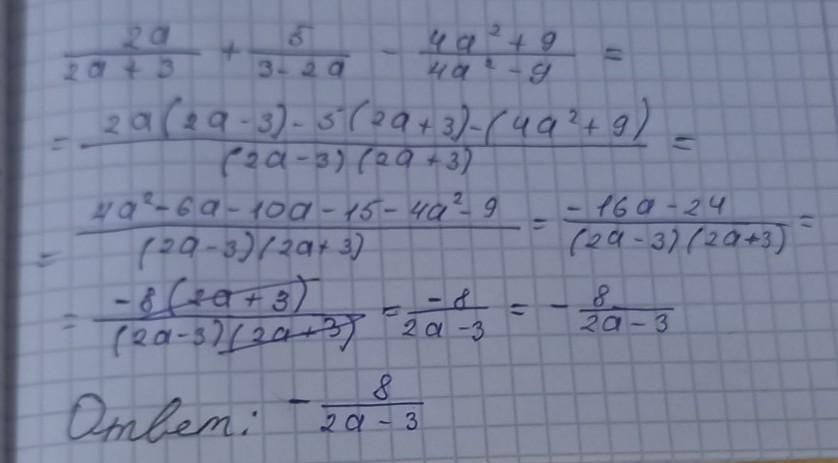 2a/(2a + 3) + 5/(3 - 2a) - (4a² + 9)/(4a² - 9) =
= (2a(2a - 3) - 5(2a + 3) - (4a² + 9))/((2a - 3)(2a + 3)) =
= (4a² - 6a - 10a - 15 - 4a² - 9)/((2a - 3)(2a + 3)) = (-16a - 24)/((2a - 3)(2a + 3)) =
= (-8(2a + 3))/((2a - 3)(2a + 3)) = (-8)/(2a - 3) = - 8/(2a - 3)
Ответ: - 8/(2a - 3)